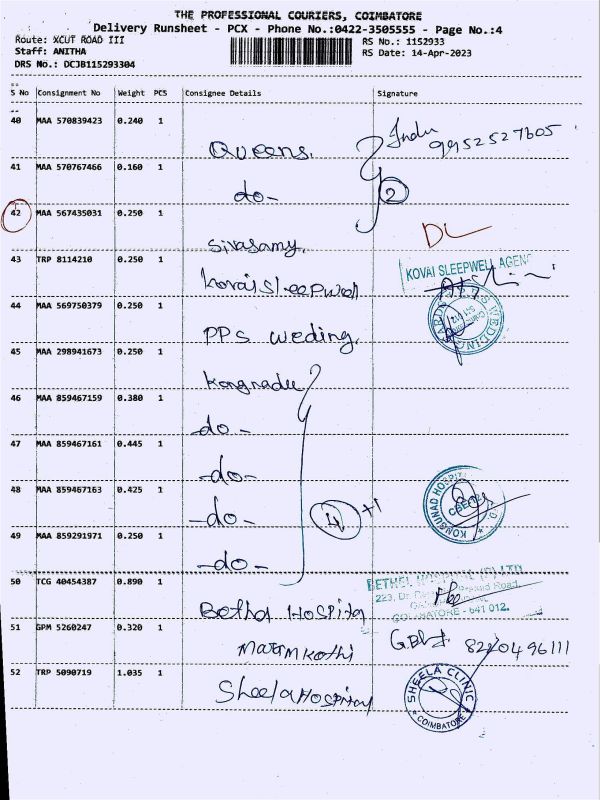 THE PROFESSIONAL COURIERS, COIMBATORE
Delivery Runsheet - PCX - Phone No.:0422-3505555 - Page No.:4
Route: XCUT ROAD III
RS No.: 1152933
Staff: ANITHA
RS Date: 14-Apr-2023
DRS No.: DCJB115293304
S No Consignment No Weight PCS Consignee Details Signature
40 MAA 570839423 0.240 1 Queens. Indu
41 MAA 570767466 0.160 1 -do- 2
42 MAA 567435031 0.250 1 Sivasamy. DL
43 TRP 8114210 0.250 1 Kovai Sleepwell KOVAI SLEEPWELL AGENC
44 MAA 569750379 0.250 1 PPS Weding. WEDDING
45 MAA 298941673 0.250 1 Kongnadu
46 MAA 859467159 0.380 1 -do-
47 MAA 859467161 0.445 1 -do-
48 MAA 859467163 0.425 1 -do- 4 +1
49 MAA 859291971 0.250 1 -do- KONGUNAD HOSPIT
50 TCG 40454387 0.890 1 Betha Hospital BETHEL HOSPITAL (P) LTD
223, Dr. Road,
COIMBATORE - 641 012.
51 GPM 5260247 0.320 1
52 TRP 5090719 1.035 1 Sheela Hospital SHEELA CLINIC
COIMBATORE